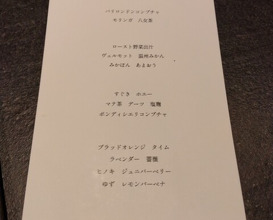 パリコンドンコンブチャ
モリンガ 八女茶
ロースト野菜出汁
ヴェルモット 温州みかん
みかぽん あまおう
すぐき ホエー
マテ茶 デーツ 塩麹
ボンディシエリコンブチャ
ブラッドオレンジ タイム
ラベンダー 薔薇
ヒノキ ジュニパーベリー
ゆず レモンバーベナ